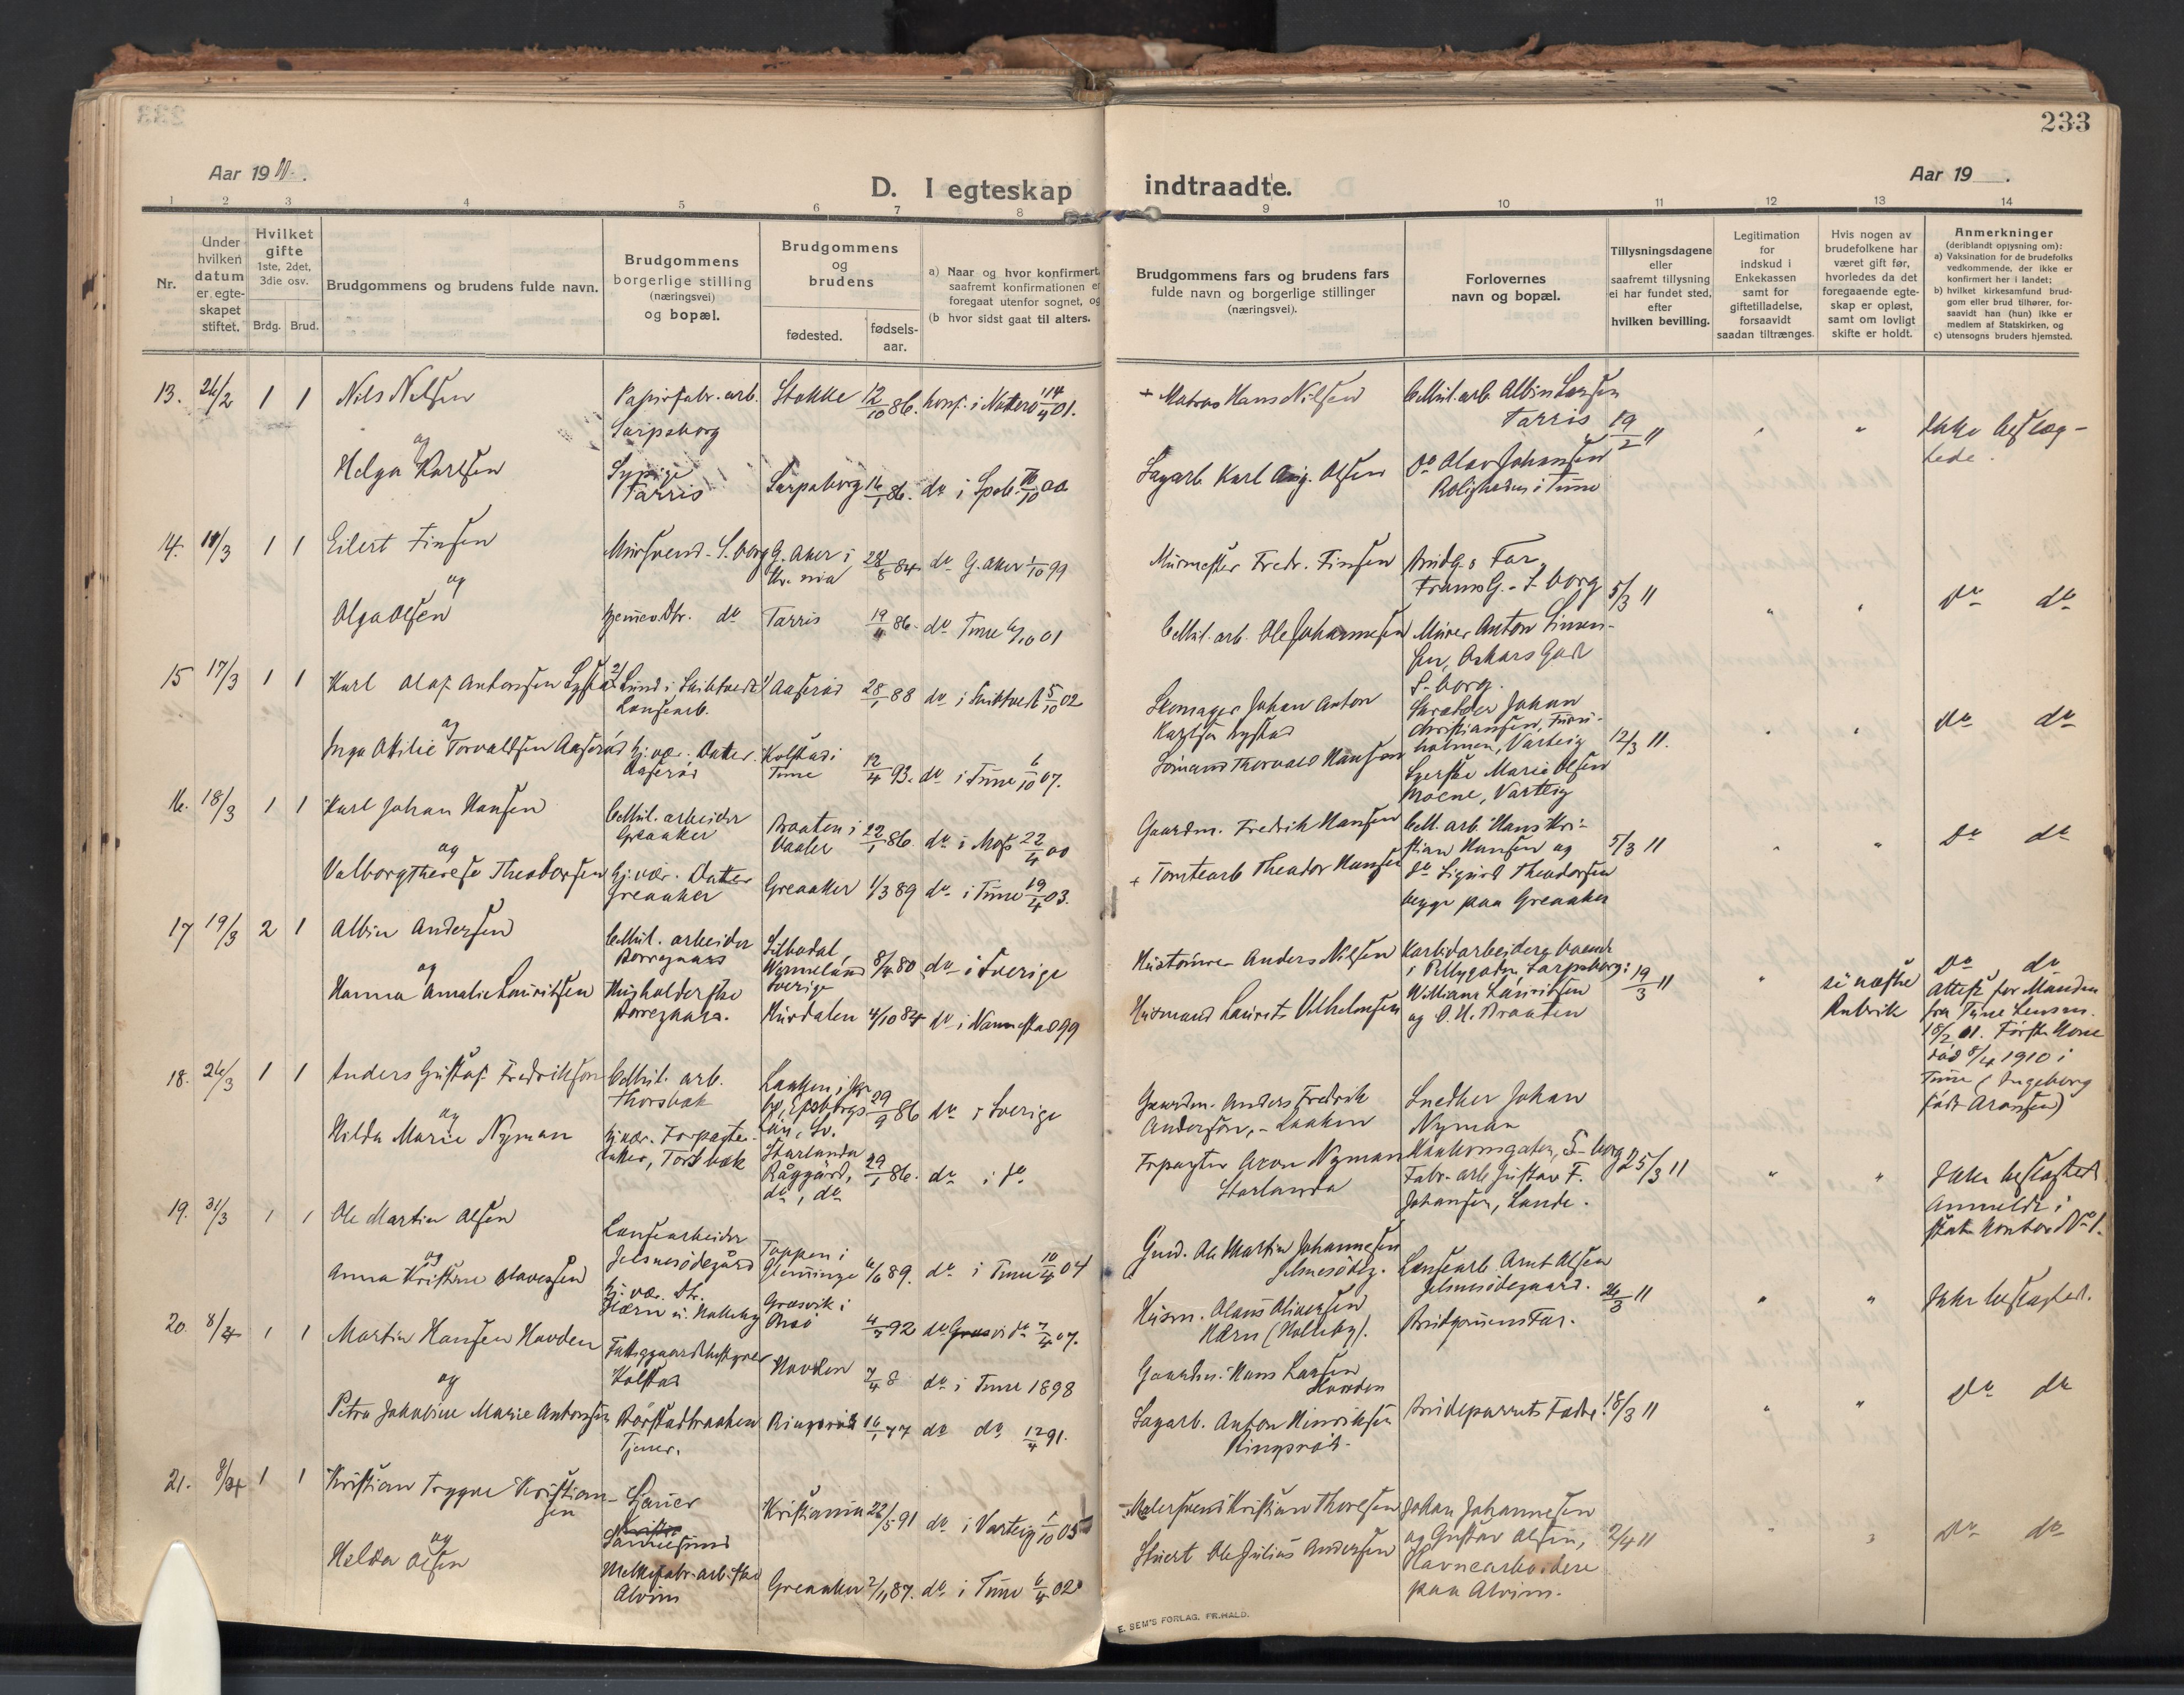 233
Aar 1911.
D. I egteskap indtraadte.
Aar 19 .
1 2 3 4 5 6 7 8 9 10 11 12 13 14
Nr.
Under hvilken datum er egteskapet stiftet.
Hvilket gifte 1ste, 2det, 3die osv.
Brdg. Brud.
Brudgommens og brudens fulde navn.
Brudgommens borgerlige stilling (næringsvei) og bopæl.
Brudgommens og brudens
fødested.
fødsels-aar.
a) Naar og hvor konfirmert, saafremt konfirmationen er foregaat utenfor sognet, og
(b hvor sidst gaat til alters.
Brudgommens fars og brudens fars fulde navn og borgerlige stillinger (næringsvei).
Forlovernes navn og bopæl.
Tillysningsdagene eller saafremt tillysning ei har fundet sted, efter hvilken bevilling.
Legitimation for indskud i Enkekassen samt for giftetilladelse, forsaavidt saadan tiltrænges.
Hvis nogen av brudefolkene har været gift før, hvorledes da det foregaaende egteskap er opløst, samt om lovligt skifte er holdt.
Anmerkninger (deriblandt oplysning om):
a) Vaksination for de brudefolks vedkommende, der ikke er konfirmert her i landet;
b) hvilket kirkesamfund brudgom eller brud tilhører, forsaavidt han (hun) ikke er medlem af Statskirken, og
c) utensogns bruders hjemsted.
13. 26/2 1 1 Nils Nilsen Papirfabr. arb. Sarpsborg Stokke 12/10 86. konf. i Nøtterø 14/4 01. + Matros Hans Nilsen Cellul. arb. Albin Larsen Tarris 19/2 11 Ikke beslægtede.
og
Helga Karlsen Syerske Tarris Sarpsborg 16/1 86. do i Spsb. 00 Sagarb. Karl Aug. Olsen Do Olav Johansen Roligheden i Tune
14. 11/3 1 1 Eilert Finsen Mursvend - S. borg G. Aker i Kr.nia 28/8 84 do G. Aker 1/10 99 Murmester Fredr. Finsen Brudg.s Far, Frams G. - S-borg 5/3 11 Do do
og
Olga Olsen Hjemev. Dtr. do Tarris 19/11 86. do Tune 6/10 01 Cellul. arb. Ole Johannesen Murer Anton Simensen, Oskars Gad S-borg.
15 17/3 1 1 Karl Olaf Antonsen Lystad Lund i Skiptvedt Løusearb. Aaserød 28/1 88 do i Skiptvedt 5/10 02 Skomager Johan Anton Karlsen Lystad Skrædder Johan Christiansen, Furuholmen, Varteig 12/3 11. Do do
og
Inga Otilie Torvaldsen Aaserød Hj. vær. Datter Aaserød Kolstad i Tune 12/4 93. do i Tune 6/10 07. Sømand Thorvald Hansen Syerske Marie Olsen Moene, Varteig
16. 18/3 1 1 Karl Johan Hansen Cellul. arbeider Greaaker Braaten i Vaaler 22/1 86. do i Moss 22/4 00 Gaardm. Fredrik Hansen Cell. arb. Hans Kristian Hansen og 5/3 11 Do do
og
Valborg Therese Theodorsen Hj. vær. Datter Greaaker Greaaker 1/3 89 do i Tune 19/4 03. + Tomtearb Theodor Hansen do Sigurd Theodorsen begge paa Greaaker
17 19/3 2 1 Albin Andersen Cellul. arbeider Borregaard Silbodal, Wermeland Sverige 8/4 80 do i Sverige Anders Nilsen Karbidarbeidere boende i Pellygaden, Sarpsborg: 19/3 11 se næste Rubrik Do do Attest for Manden fra Tune Lensm. 18/2 01. Første Kone død 8/4 1910 i Tune (Ingeborg født Aronsen)
og
Hanna Amalie Lauritsen Husholderske Borregaard. Hurdalen 4/10 84 do i Nannestad 99 Husmand Laurits Vilhelmsen William Lauritsen og O. H. Braaten
18. 26/3 1 1 Anders Gustaf Fredrikson Cellul. arb. Thorsbæk Laaken, Elfsborgs län, Sv. 29/9 86 do i Sverige Gaardm. Anders Fredrik Andersson, - Laaken Snedker Johan Nyman Haakonsgaten, S-borg 25/3 11 Ikke beslægted. Anmeldt i
og
Hilda Marie Nyman Hj. vær. Forpagterdatter, Torsbæk Starlanda Råggärd, do, do 29/1 86. do i do Forpagter Aron Nyman Starlanda Fabr. arb. Gustav F. Johansen, Lande.
19. 31/3 1 1 Ole Martin Olsen Løusearbeider Jelsnesødegård Toppen i Glemminge 6/6 89. do i Tune 10/4 04 Gmd. Ole Martin Johannesen Jelsnesødeg. Løusearb. Arnt Olsen Jelsnesødegaard. 26/3 11 Ikke beslægted.
og
Anna Kristine Olavesen Hj. vær. Dtr. Hærn u. Holleby Græsvik i Onsø 4/7 92 do i do 7/4 07. Husm. Olaus Oliversen Hærn (Holleby). Brudgommens Far.
20. 8/4 1 1 Martin Hansen Hovden Fattiggaardbestyrer Kolstad Hovden 7/4 8 do i Tune 1898 Gaardm. Hans Larsen Hovden Brudeparrets Fædre. 18/3 11 Do do
og
Petra Jakobine Marie Antonsen Børstadbraaken Tjener. Ringsrød 16/1 77 do do 12/4 91. Sagarb. Anton Hinriksen Ringsrød.
21. 8/4 1 1 Kristian Trygve Kristiansen Garver Sannesund Kristiania 22/5 91 do i Varteig 1/10 05 Malersvend Kristian Thoresen Johan Johannesen og Gustav Olsen, 2/4 11 Do do
og
Helda Olsen Melkefabr. arb.ske Alvim Greaaker 2/11 87. do i Tune 6/4 02 Stuert Ole Julius Andersen Havnearbeidere paa Alvim.
E. SEM'S FORLAG. FR.HALD.